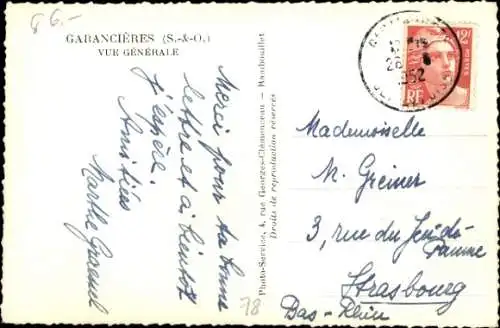 6.-
GARANCIÈRES (S.-&-O.)
VUE GÉNÉRALE
Merci pour ta bonne
lettre et à bientôt
j'espère.
Amitiés
Marthe
Photo-Service, 4, rue Georges-Clémenceau - Rambouillet
Droits de reproduction réservés
78
12F
POSTES
RF
1952
Mademoiselle
M. Greiner
3, rue du Jeu-de-
Paume
Strasbourg
Bas-Rhin